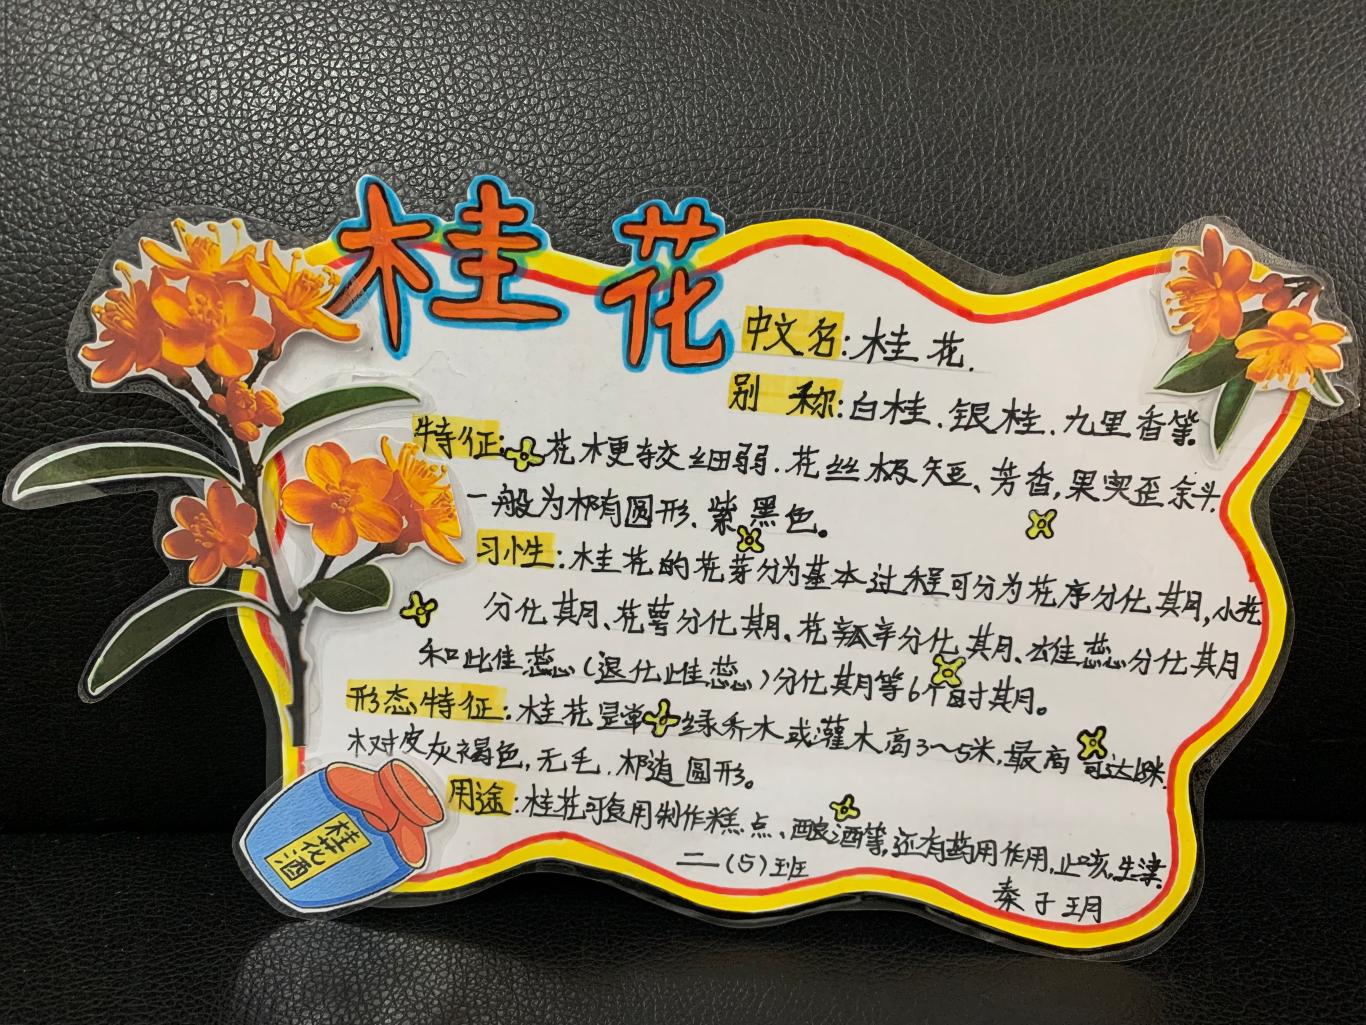 桂花
中文名:桂花.
别称:白桂.银桂.九里香等.
特征:花梗较细弱.花丝极短、芳香,果实歪斜.
一般为椭圆形、紫黑色。
习性:桂花的花芽分为基本过程可分为花序分化期,小花
分化期、花萼分化期、花瓣分化期、雄蕊分化期
和雌蕊(退化雌蕊)分化期等6个时期。
形态特征:桂花是常绿乔木或灌木高3~5米,最高可达18米.
树皮灰褐色,无毛.椭圆形。
用途:桂花可食用制作糕点、酿酒等,还有药用作用,止咳,生津.
二(5)班
秦子玥
桂花酒